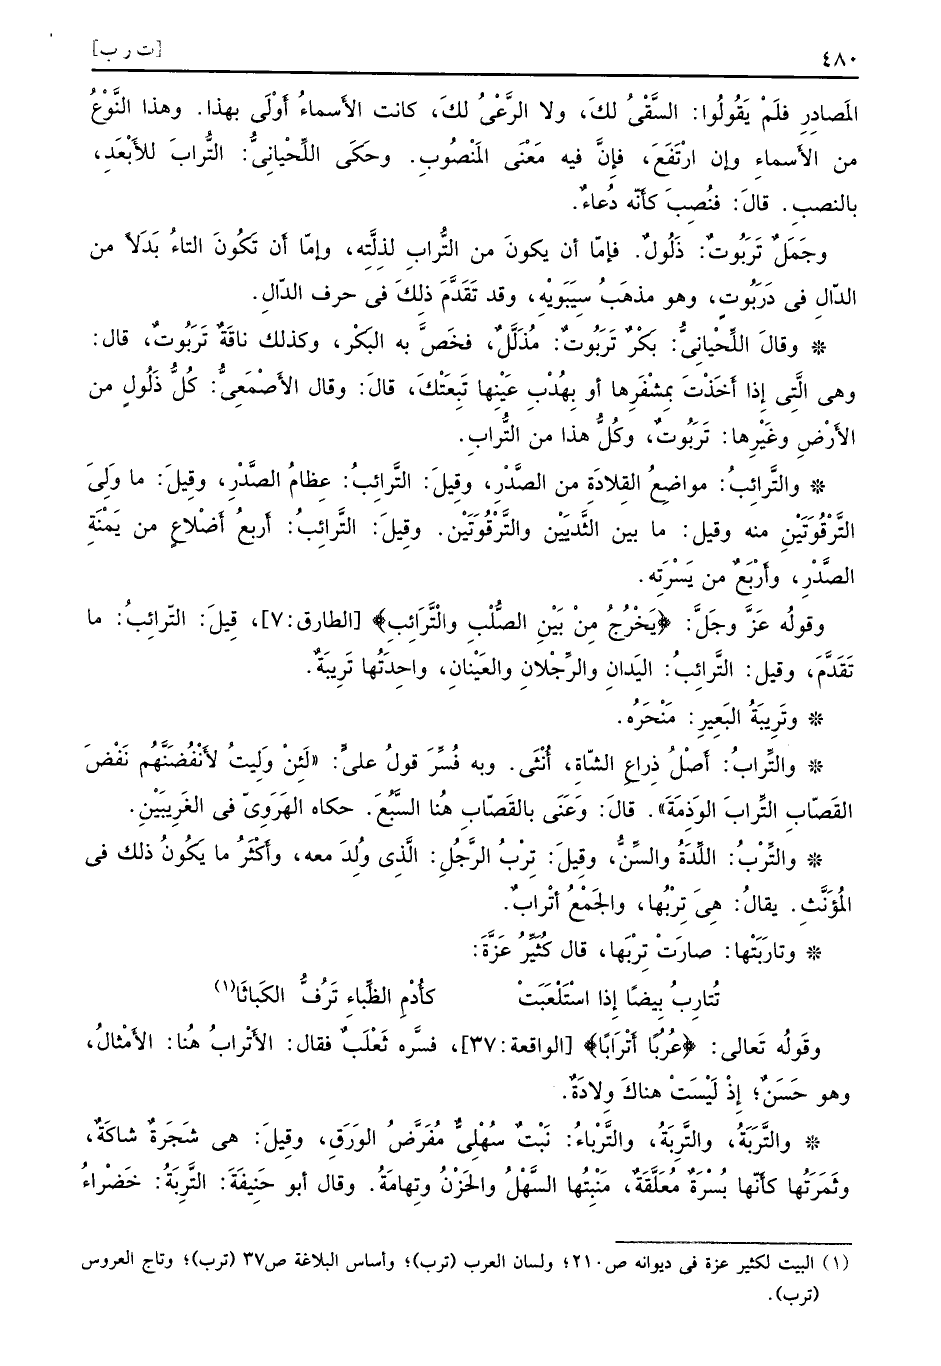 ٤٨٠ [ت ر ب]
المَصادِرِ فلَمْ يَقُولُوا: السَّقْىُ لكَ، ولا الرَّعْىُ لكَ، كانت الأسماءُ أَوْلَى بهذا. وهذا النَّوْعُ
من الأسماءِ وإن ارْتَفَعَ، فإنَّ فيه مَعْنَى المَنْصُوبِ. وحَكَى اللِّحيانىُّ: التُّرابَ للأَبْعَدِ،
بالنصبِ. قالَ: فنُصِبَ كأنّه دُعاءٌ.
وجَمَلٌ تَرَبُوتٌ: ذَلُولٌ. فإمّا أن يكونَ من التُّرابِ لذلَّتِه، وإمّا أن تَكُونَ التاءُ بَدَلاً من
الدّالِ فى دَرَبُوتٍ، وهو مذهَبُ سِيَبَوَيْهِ، وقد تَقَدَّمَ ذلكَ فى حرف الدّالِ.
❊ وقالَ اللِّحْيانىُّ: بَكْرٌ تَرَبُوتٌ: مُذَلَّلٌ، فخَصَّ به البَكْرَ، وكذلك ناقَةٌ تَرَبُوتٌ، قال:
وهى الَّتِى إذا أخَذْتَ بمِشْفَرِها أو بهُدْبِ عَيْنِها تَبِعَتْكَ، قالَ: وقال الأَصْمَعِىُّ: كلُّ ذَلُولٍ من
الأرْضِ وغَيْرِها: تَرَبُوتٌ، وكلُّ هذا من التُّرابِ.
❊ والتَّرائبُ: مواضِعُ القِلادَةِ من الصَّدْرِ، وقِيلَ: التَّرائبُ: عِظامُ الصَّدْرِ، وقِيلَ: ما وَلِىَ
التَّرْقُوَتَيْنِ منه وقيل: ما بين الثَّدْيَيْنِ والتَّرْقُوَتَيْنِ. وقيلَ: التَّرائبُ: أربعُ أضْلاعٍ من يَمْنَةِ
الصَّدْرِ، وأَرْبَعٌ من يَسْرَتِه.
وقولُه عَزَّ وجَلَّ: ﴿يَخْرُجُ مِنْ بَيْنِ الصُّلْبِ والتَّرَائِبِ﴾ [الطارق:٧]، قِيلَ: التّرائبُ: ما
تَقَدَّمَ، وقيل: التَّرائبُ: اليَدانِ والرِّجْلانِ والعَيْنانِ، واحِدَتُها تَرِيبَةٌ.
❊ وتَرِيبَةُ البَعِيرِ: مَنْحَرُه.
❊ والتِّرابُ: أصْلُ ذراعِ الشّاةِ، أُنْثَى. وبه فُسِّرَ قولُ علىٍّ: «لَئِنْ وَلِيتُ لأَنْفُضَنَّهُم نَفْضَ
القَصّابِ التِّرابَ الوَذِمَةَ». قالَ: وعَنَى بالقَصّابِ هُنا السَّبُعَ. حكاه الهَرَوِىّ فى الغَرِيبَيْنِ.
❊ والتِّرْبُ: اللِّدَةُ والسِّنُّ، وقِيلَ: تِرْبُ الرَّجُلِ: الَّذى وُلِدَ معه، وأكْثَرُ ما يَكُونُ ذلك فى
المُؤَنَّثِ. يقالُ: هِىَ تِرْبُها، والجَمْعُ أتْرابٌ.
❊ وتارَبَتْها: صارَتْ تِرْبَها، قال كُثَيِّرُ عَزَّةَ:
تُتارِبُ بِيضًا إذا اسْتَلْعَبَتْ كأُدْمِ الظِّباءِ تَرُفُّ الكَباثَا(١)
وقولُه تَعالى: ﴿عُرُبًا أتْرَابًا﴾ [الواقعة:٣٧]، فسرّه ثَعْلَبٌ فقال: الأتْرابُ هُنا: الأمْثالُ،
وهو حَسَنٌ؛ إذْ لَيْسَتْ هناكَ وِلادَةٌ.
❊ والتَّرَبَةُ، والتَّرِبَةُ، والتَّرْباءُ: نَبْتٌ سُهْلِىٌّ مُفَرَّضُ الوَرَقِ، وقيلَ: هى شَجَرَةٌ شاكَةٌ،
وثَمَرَتُها كأنّها بُسْرَةٌ مُعَلَّقَةٌ، مَنْبِتُها السَّهْلُ والحَزْنُ وتِهامَةُ. وقال أبو حَنِيفَةَ: التَّرِبَةُ: خَضْراءُ
(١) البيت لكثير عزة فى ديوانه ص٢١٠؛ ولسان العرب (ترب)؛ وأساس البلاغة ص٣٧ (ترب)؛ وتاج العروس
(ترب).